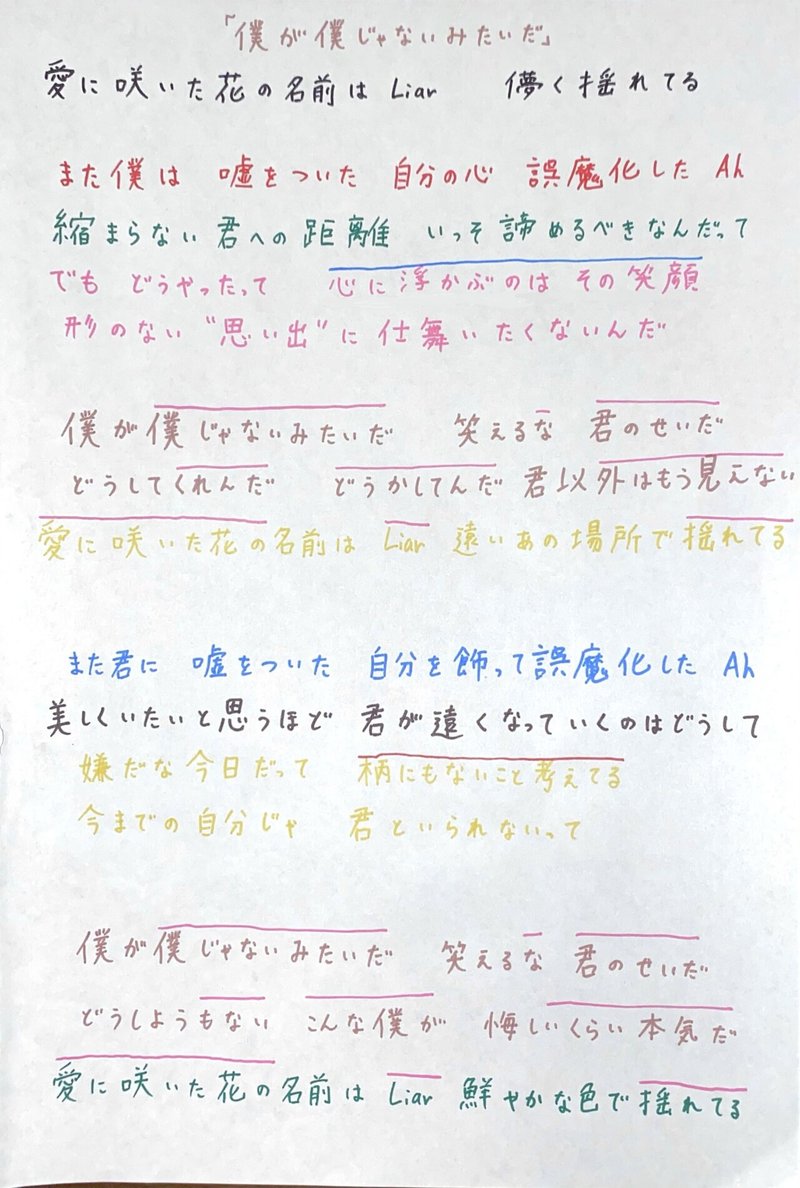 「僕が僕じゃないみたいだ」
愛に咲いた花の名前は Liar 儚く揺れてる
また僕は 嘘をついた 自分の心 誤魔化した Ah
縮まらない 君への距離 いっそ諦めるべきなんだって
でも どうやったって 心に浮かぶのは その笑顔
形のない “思い出” に 仕舞いたくないんだ
僕が僕じゃないみたいだ 笑えるな 君のせいだ
どうしてくれんだ どうかしてんだ 君以外はもう見えない
愛に咲いた花の名前は Liar 遠いあの場所で揺れてる
また君に 嘘をついた 自分を飾って誤魔化した Ah
美しくいたいと思うほど 君が遠くなっていくのはどうして
嫌だな今日だって 柄にもないこと考えてる
今までの自分じゃ 君といられないって
僕が僕じゃないみたいだ 笑えるな 君のせいだ
どうしようもない こんな僕が 悔しいくらい本気だ
愛に咲いた花の名前は Liar 鮮やかな色で揺れてる